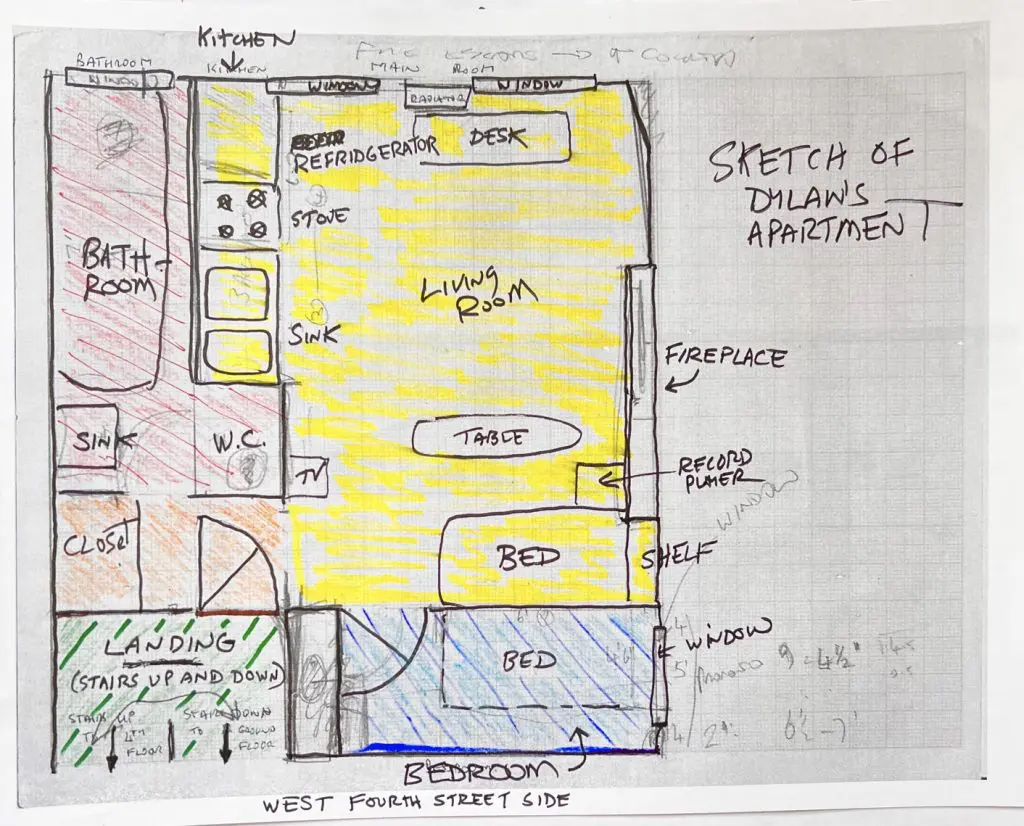 KITCHEN
BATHROOM
KITCHEN
MAIN ROOM
WINDOW
WINDOW
RADIATOR
WINDOW
REFRIDGERATOR
DESK
SKETCH OF
DYLAN'S
APARTMENT
STOVE
BATH-
ROOM
LIVING
ROOM
SINK
FIREPLACE
SINK
W.C.
TABLE
TV
RECORD
PLAYER
WINDOW
CLOSET
BED
SHELF
LANDING
(STAIRS UP AND DOWN)
BED
WINDOW
STAIRS UP
TO
4TH
FLOOR
STAIRS DOWN
TO
GROUND
FLOOR
BEDROOM
WEST FOURTH STREET SIDE